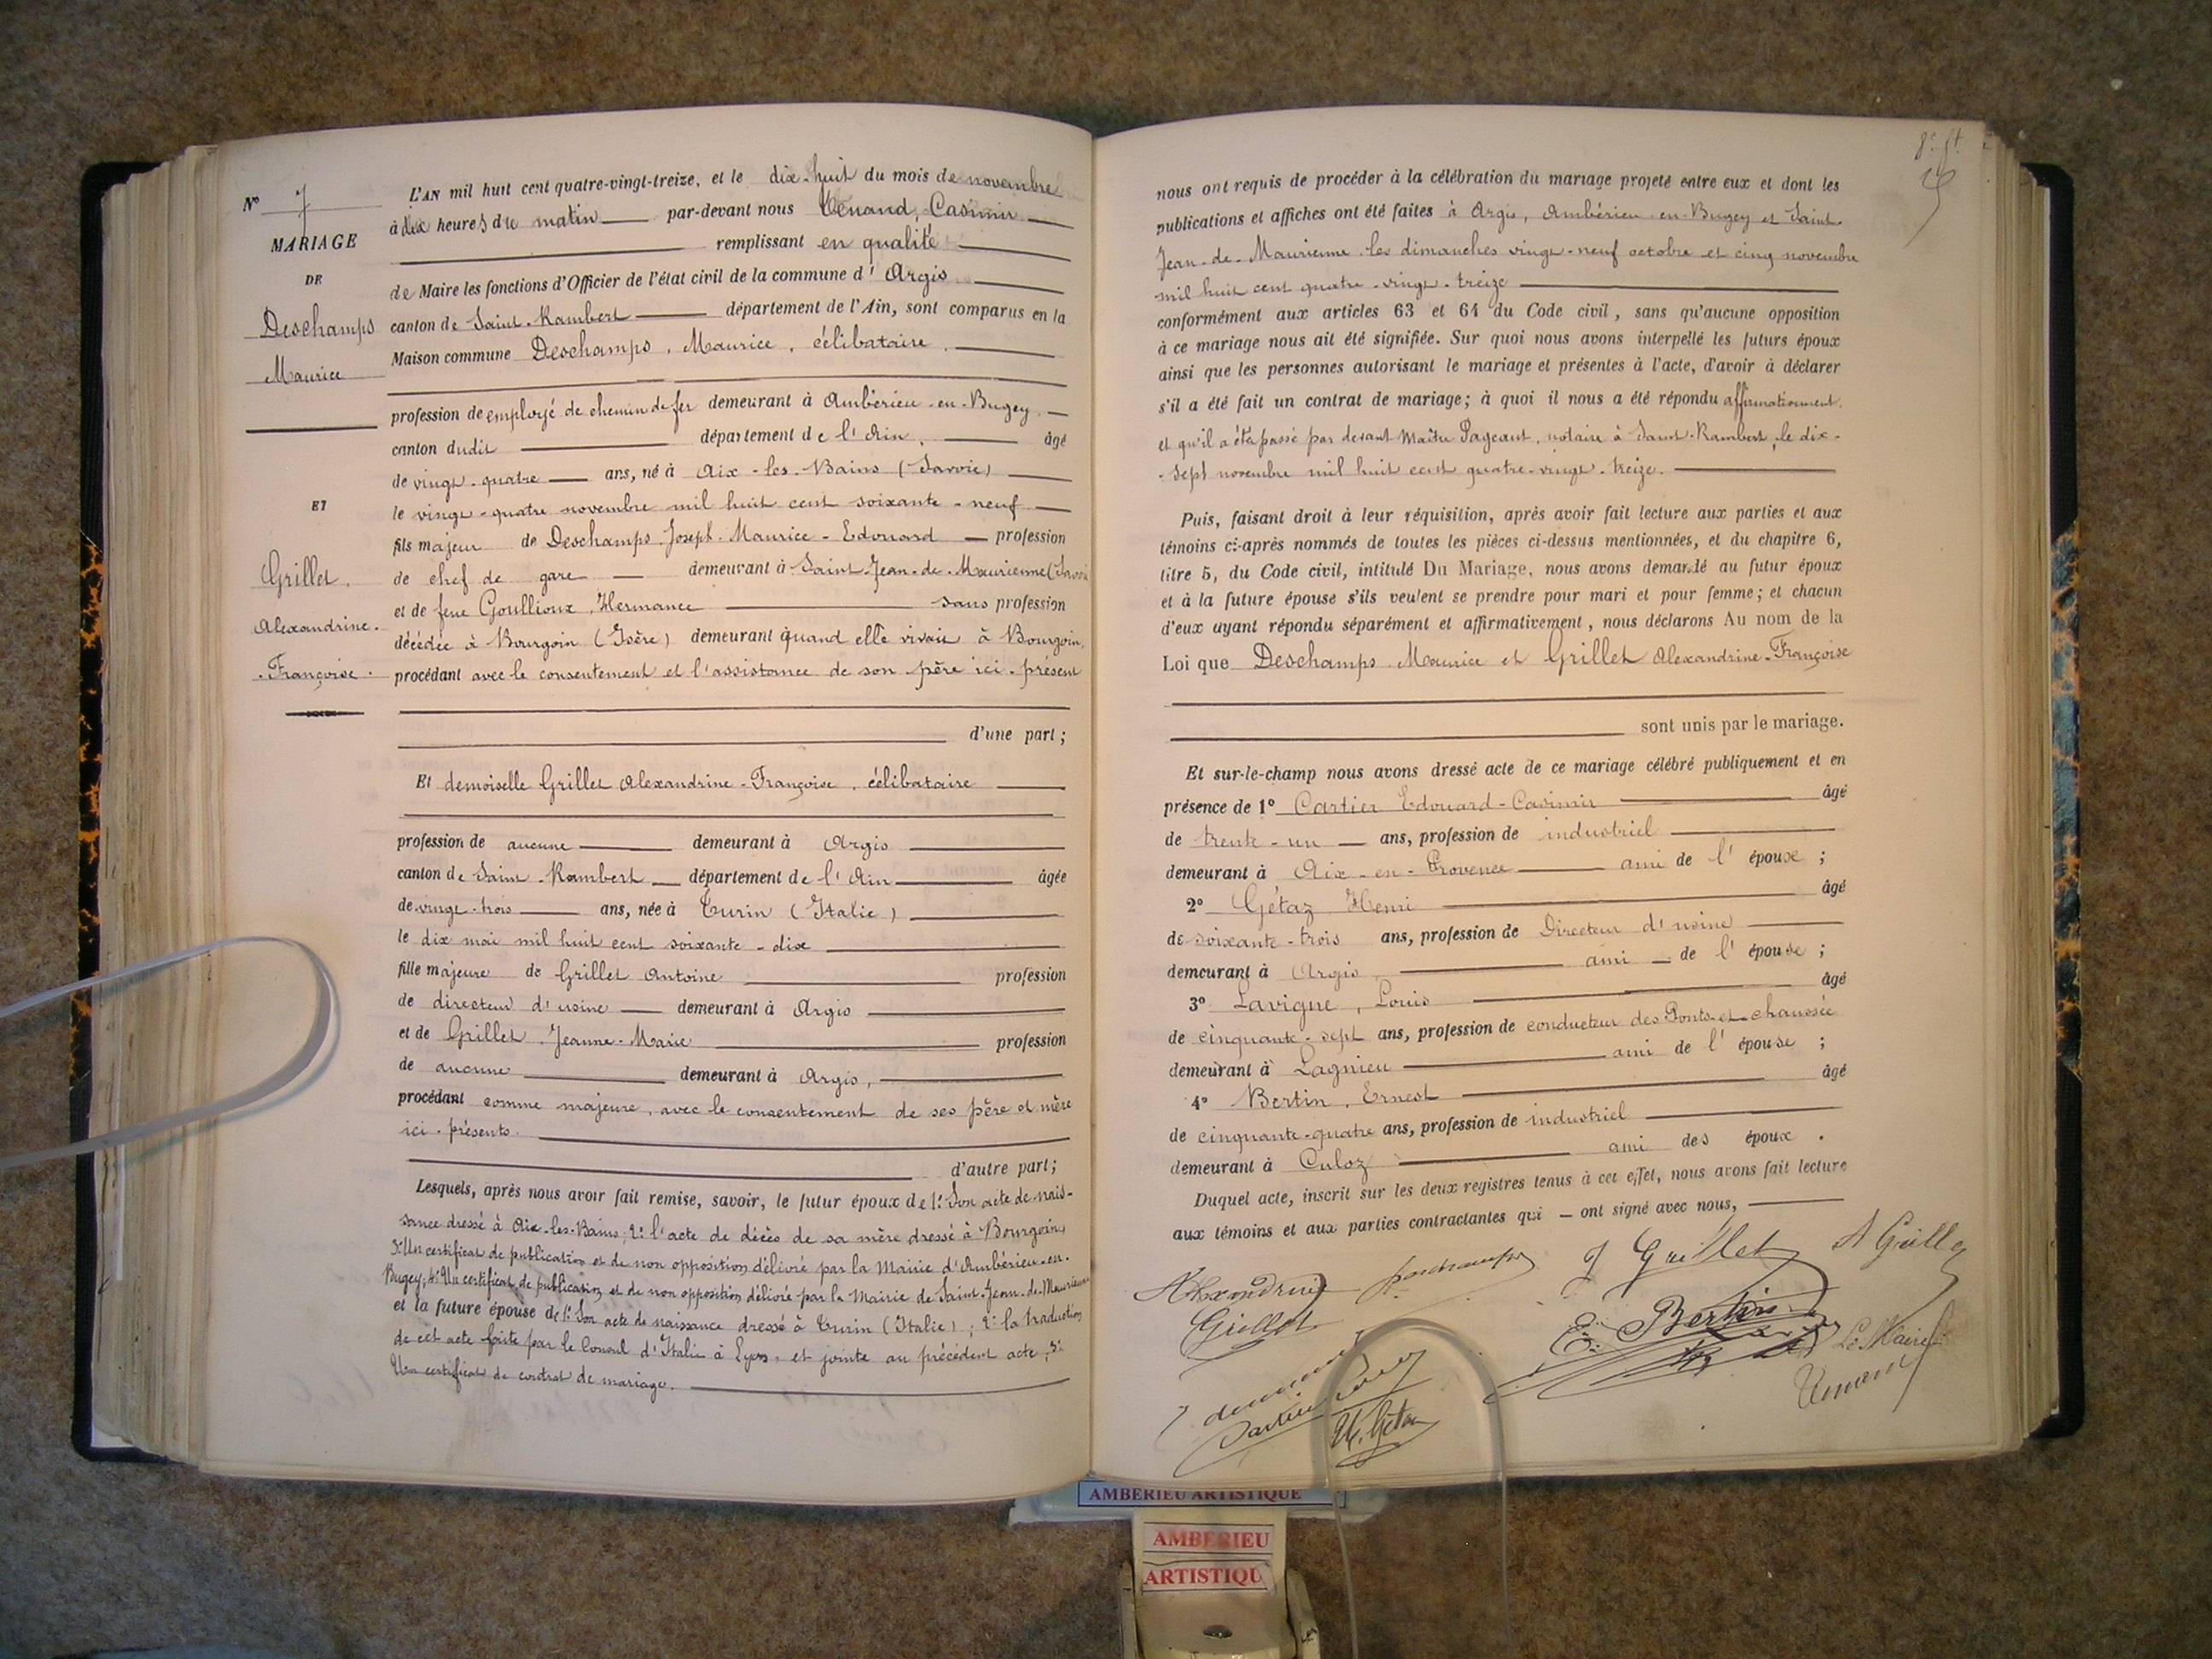 N° 7
MARIAGE
DE
Deschamps
Maurice
ET
Grillet.
Alexandrine.
Françoise.
L'AN mil huit cent quatre-vingt-treize, et le dix-huit du mois de novembre
à dix heures du matin par-devant nous Venand, Casimir
remplissant en qualité
de Maire les fonctions d'Officier de l'état civil de la commune d'Argis
canton de Saint-Rambert département de l'Ain, sont comparus en la
Maison commune Deschamps, Maurice, célibataire.
profession de employé de chemin de fer demeurant à Ambérieu-en-Bugey.
canton dudit département de l'Ain, âgé
de vingt-quatre ans, né à Aix-les-Bains (Savoie)
le vingt-quatre novembre mil huit cent soixante-neuf
fils majeur de Deschamps Joseph-Maurice-Edouard profession
de chef de gare demeurant à Saint-Jean-de-Maurienne (Savoie
et de feue Goullioux, Hermance sans profession
décédée à Bourgoin (Isère) demeurant quand elle vivait à Bourgoin,
procédant avec le consentement et l'assistance de son père ici-présent
d'une part;
Et demoiselle Grillet Alexandrine-Françoise, célibataire
profession de aucune demeurant à Argis
canton de Saint-Rambert département de l'Ain âgée
de vingt-trois ans, née à Turin (Italie)
le dix mai mil huit cent soixante-dix
fille majeure de Grillet Antoine profession
de directeur d'usine demeurant à Argis
et de Grillet, Jeanne-Marie profession
de aucune demeurant à Argis,
procédant comme majeure, avec le consentement de ses père et mère
ici-présents.
d'autre part;
Lesquels, après nous avoir fait remise, savoir, le futur époux de 1° Son acte de nais-
sance dressé à Aix-les-Bains; 2° l'acte de décès de sa mère dressé à Bourgoin;
3° Un certificat de publication et de non opposition délivré par la Mairie d'Ambérieu-en-
Bugey; 4° Un certificat de publication et de non opposition délivré par la Mairie de Saint-Jean-de-Maurienne
et la future épouse de 1° Son acte de naissance dressé à Turin (Italie); 2° la traduction
de cet acte faite par le Consul d'Italie à Lyon, et jointe au précédent acte; 3°
Un certificat de contrat de mariage.
nous ont requis de procéder à la célébration du mariage projeté entre eux et dont les
publications et affiches ont été faites à Argis, Ambérieu-en-Bugey et Saint-
Jean-de-Maurienne les dimanches vingt-neuf octobre et cinq novembre
mil huit cent quatre-vingt-treize
conformément aux articles 63 et 64 du Code civil, sans qu'aucune opposition
à ce mariage nous ait été signifiée. Sur quoi nous avons interpellé les futurs époux
ainsi que les personnes autorisant le mariage et présentes à l'acte, d'avoir à déclarer
s'il a été fait un contrat de mariage; à quoi il nous a été répondu affirmativement.
et qu'il a été passé par devant Maître Pageaut, notaire à Saint-Rambert, le dix-
-sept novembre mil huit cent quatre-vingt-treize.
Puis, faisant droit à leur réquisition, après avoir fait lecture aux parties et aux
témoins ci-après nommés de toutes les pièces ci-dessus mentionnées, et du chapitre 6,
titre 5, du Code civil, intitulé Du Mariage, nous avons demandé au futur époux
et à la future épouse s'ils veulent se prendre pour mari et pour femme; et chacun
d'eux ayant répondu séparément et affirmativement, nous déclarons Au nom de la
Loi que Deschamps Maurice et Grillet Alexandrine-Françoise
sont unis par le mariage.
Et sur-le-champ nous avons dressé acte de ce mariage célébré publiquement et en
présence de 1° Cartier Edouard-Casimir âgé
de trente-un ans, profession de industriel
demeurant à Aix-en-Provence ami de l'époux;
2° Gétaz Henri âgé
de soixante-trois ans, profession de Directeur d'usine
demeurant à Argis ami de l'épouse;
3° Lavigne, Louis âgé
de cinquante-sept ans, profession de conducteur des Ponts-et-chaussée
demeurant à Lagnieu ami de l'épouse;
4° Bertin, Ernest âgé
de cinquante-quatre ans, profession de industriel
demeurant à Culoz ami des époux.
Duquel acte, inscrit sur les deux registres tenus à cet effet, nous avons fait lecture
aux témoins et aux parties contractantes qui ont signé avec nous,
Alexandrine Deschamps J Grillet A Grillet
Grillet E. Bertin
Le Maire
H. Gétaz
AMBERIEU ARTISTIQUE
AMBERIEU
ARTISTIQU